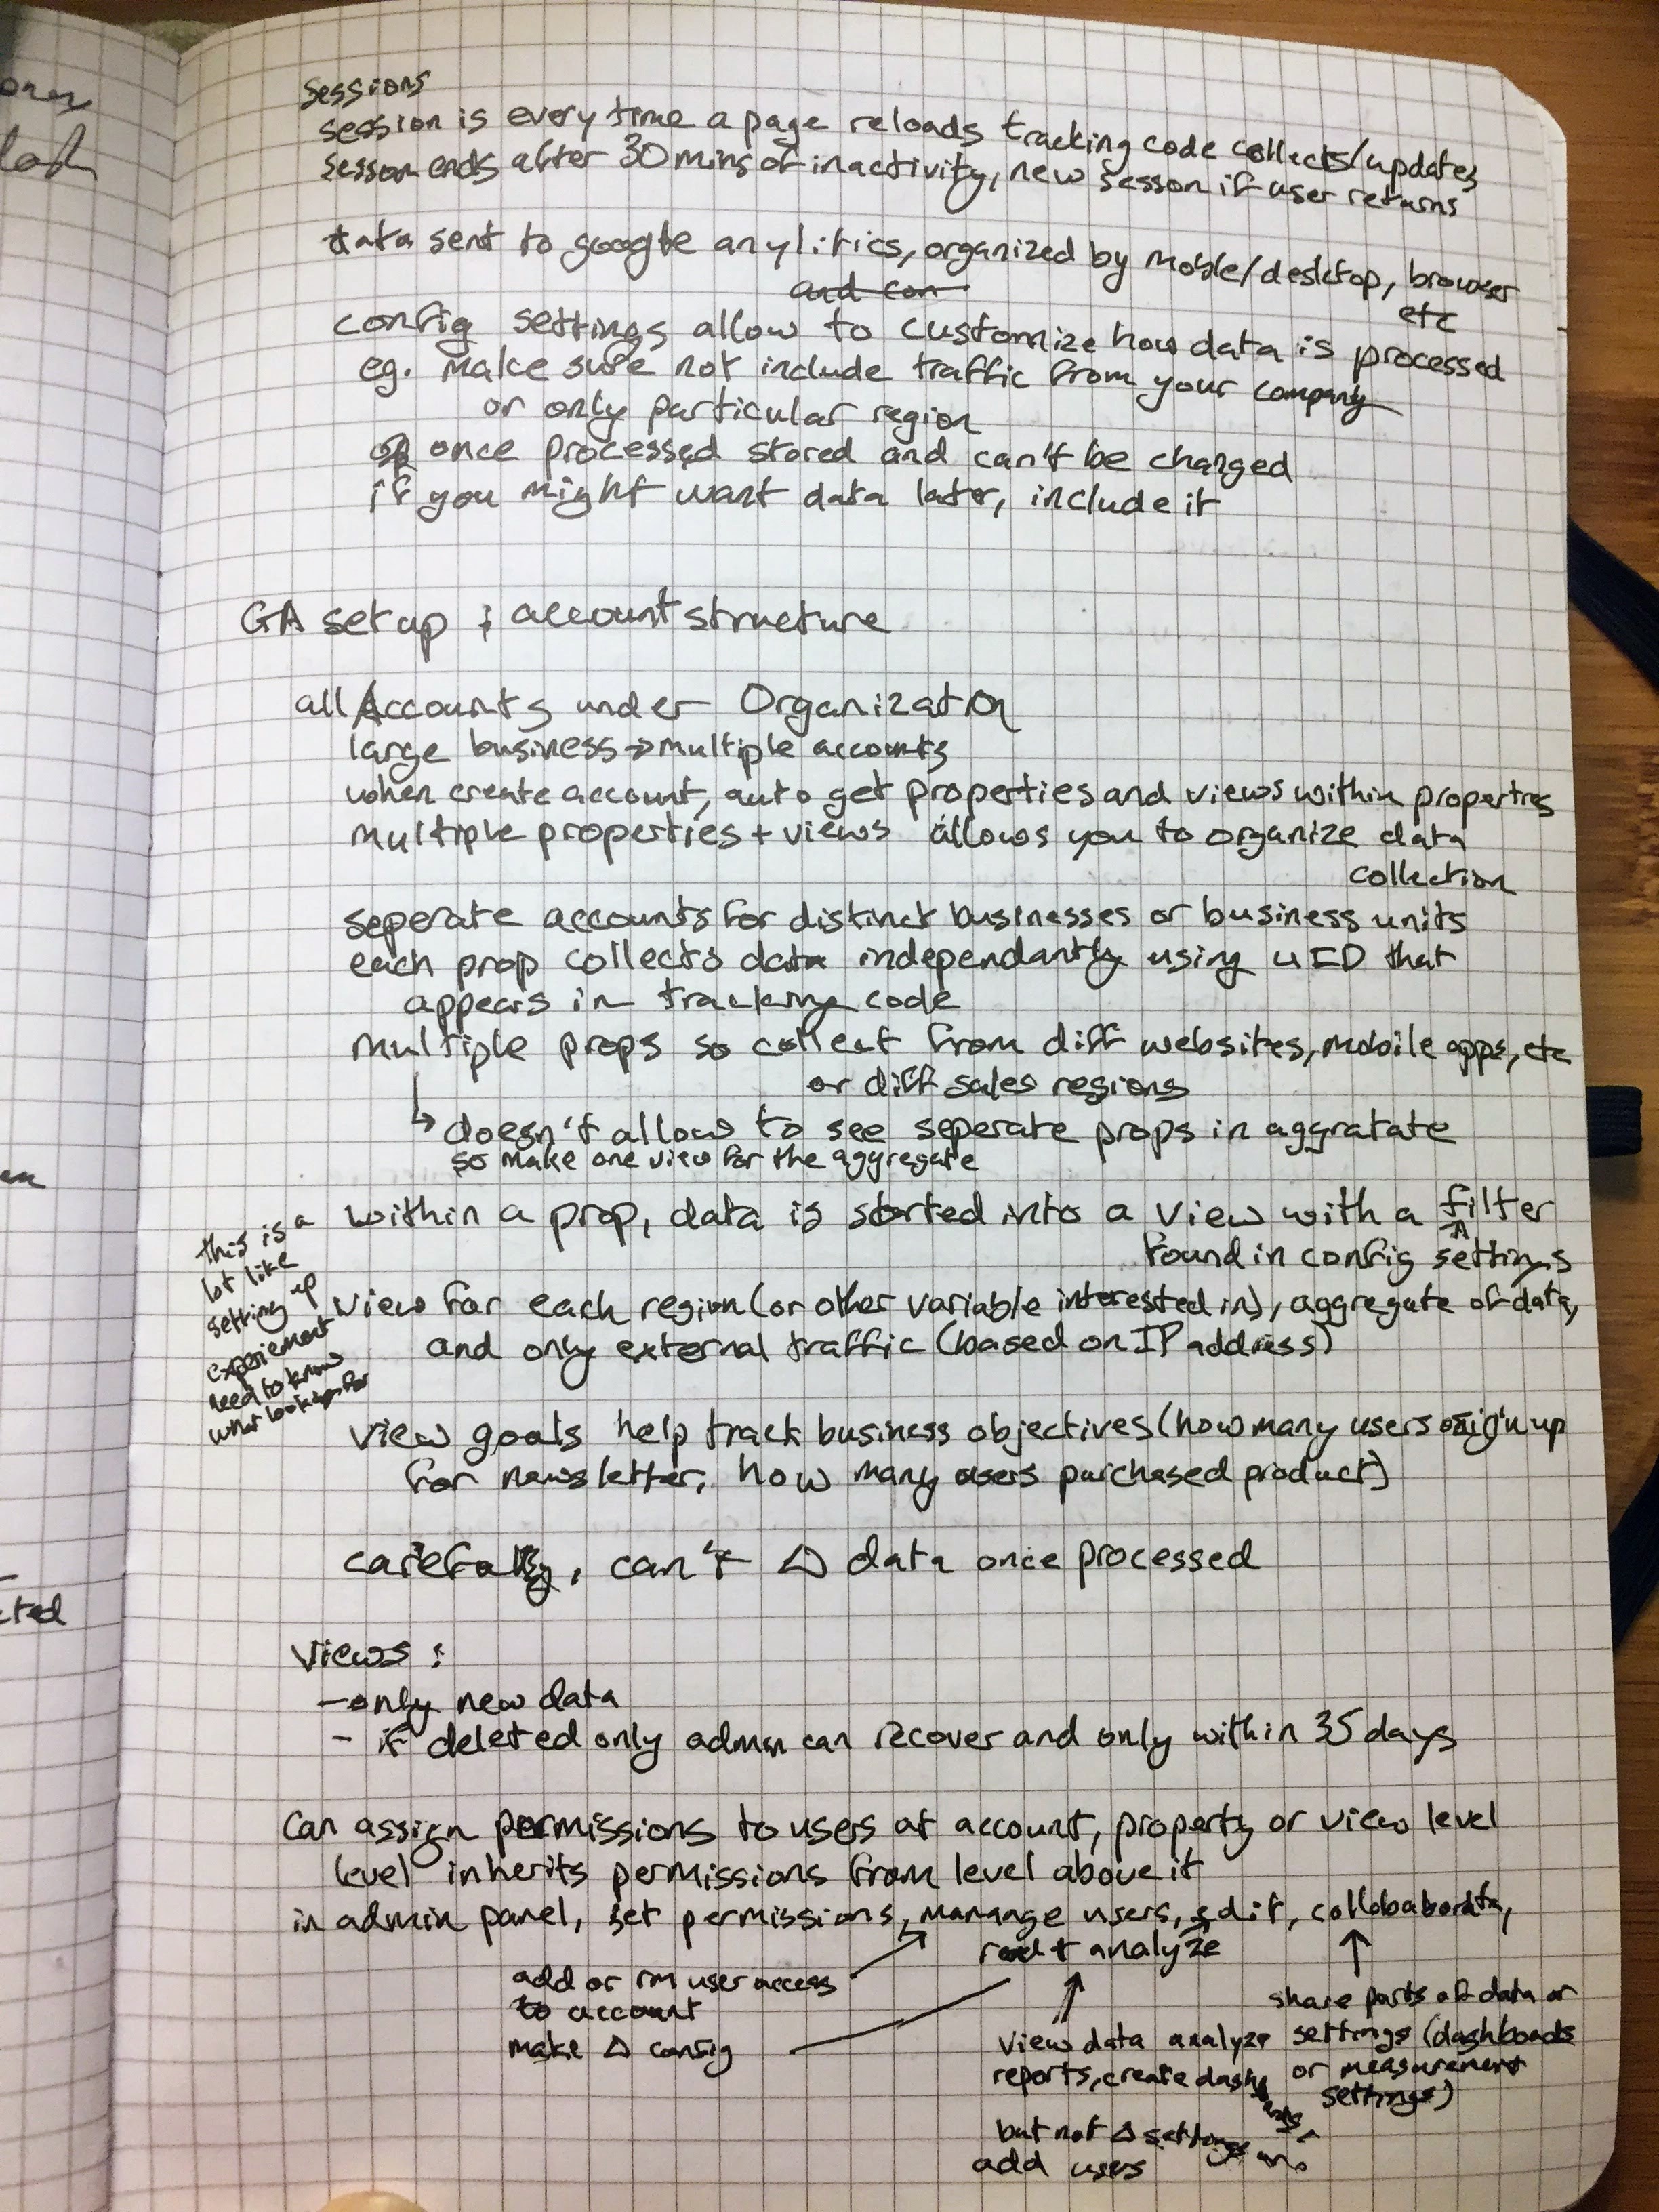 ones
sessions
session is every time a page reloads tracking code collects/updates
sesson ends after 30 mins of inactivity, new sesson if user returns
data sent to google anylitics, organized by mobile/desktop, browser
etc
and con
config settings allow to customize how data is processed
eg. make sure not include traffic from your company
or only particular region
once processed stored and can't be changed
if you might want data later, include it
GA set up & account structure
all Accounts under Organization
large business → multiple accounts
when create account, auto get properties and views within properties
multiple properties + views allows you to organize data
collection
seperate accounts for distinct businesses or business units
each prop collects data independantly using UID that
appears in tracking code
multiple props so collect from diff websites, mobile apps, etc
or diff sales regions
↳ doesn't allow to see seperate props in aggratate
so make one view for the aggregate
within a prop, data is storted into a view with a filter
found in config settings
this is a
lot like
setting up
experiement
need to know
what looking for
view for each region (or other variable interested in), aggregate of data,
and only external traffic (based on IP address)
view goals help track business objectives (how many users sign up
for newsletter, how many users purchased product)
carefully, can't Δ data once processed
cted
Views:
- only new data
- if deleted only admin can recover and only within 35 days
Can assign permissions to users at account, property or view level
level inherits permissions from level above it
in admin panel, set permissions, manange users, edit,
read + analyze
add or rm user access
to account
make Δ config
view data analyze
reports, create
but not Δ settings or
add users
share parts of data or
settings (dashboads
or measurement
settings)